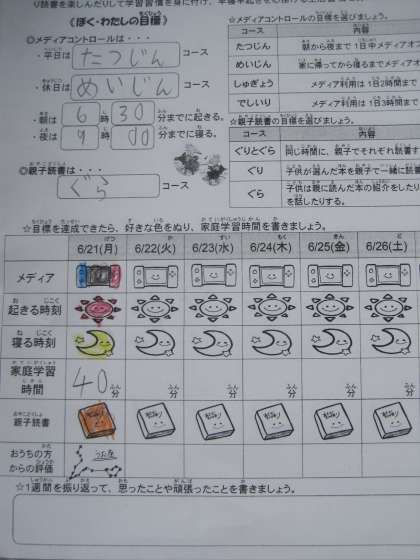 り読書を楽しんだりして学習習慣を身に付け、
《ぼく・わたしの目標》
◎メディアコントロールは・・・
・平日は たつじん コース
・休日は めいじん コース
・朝は 6 時 30 分までに起きる。
・夜は 9 時 00 分までに寝る。
◎親子読書は・・・
ぐら コース
☆メディアコントロールの目標を選びましょう。
コース 内容
たつじん 朝から夜まで1日中メディアオ
めいじん 家に帰ってから寝るまでメディオ
しゅぎょう メディア利用は1日2時間まで
でしいり メディア利用は1日3時間
☆親子読書の目標を選びましょう。
コース 内容
ぐりとぐら 同じ時間に、親子でそれぞれ読書す
ぐり 子供が選んだ本を親子で一緒に読書
ぐら 子供は親に読んだ本の紹介をしたり
を話したりする。
☆目標を達成できたら、好きな色をぬり、家庭学習時間を書きましょう。
6/21(月) 6/22(火) 6/23(水) 6/24(木) 6/25(金) 6/26(土)
メディア
起きる時刻
寝る時刻
家庭学習
時間 40分 分 分 分 分 分
親子読書
おうちの方
からの評価
☆1週間を振り返って、思ったことや頑張ったことを書きましょう。